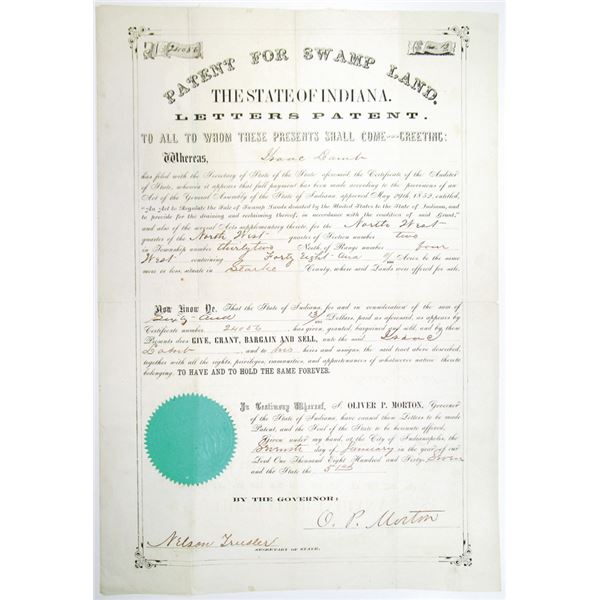 24056
PATENT FOR SWAMP LAND.
THE STATE OF INDIANA.
LETTERS PATENT.
TO ALL TO WHOM THESE PRESENTS SHALL COME---GREETING:
Whereas, Isaac Lamb
has filed with the Secretary of State of the State aforesaid, the Certificate of the Auditor
of State, wherein it appears that full payment has been made according to the provisions of an
Act of the General Assembly of the State of Indiana, approved May 29th, 1852, entitled,
"An Act to Regulate the Sale of Swamp Lands donated by the United States to the State of Indiana, and
to provide for the draining and reclaiming thereof, in accordance with the condition of said Grant,"
and also of the several Acts supplementary thereto, for the North West
quarter of the North West quarter of Section number two
in Township number thirtytwo North, of Range number four
West containing Forty Eight and /100 Acres be the same
more or less, situate in Starke County, where said Lands were offered for sale.
Now Know Ye, That the State of Indiana, for and in consideration of the sum of
Sixty and 13/100 Dollars, paid as aforesaid, as appears by
Certificate number 24056, has given, granted, bargained and sold, and by these
Presents does GIVE, GRANT, BARGAIN AND SELL, unto the said Isaac
Lamb, and to his heirs and assigns, the said tract above described,
together with all the rights, privileges, immunities, and appurtenances of whatsoever nature thereto
belonging, TO HAVE AND TO HOLD THE SAME FOREVER.
In Testimony Whereof, I, OLIVER P. MORTON, Governor
of the State of Indiana, have caused these Letters to be made
Patent, and the Seal of the State to be hereunto affixed.
Given under my hand, at the City of Indianapolis, the
day of January in the year of our
Lord One Thousand Eight Hundred and Sixty-Seven
and the State the 51st
BY THE GOVERNOR:
O. P. Morton
Nelson Trusler
SECRETARY OF STATE.